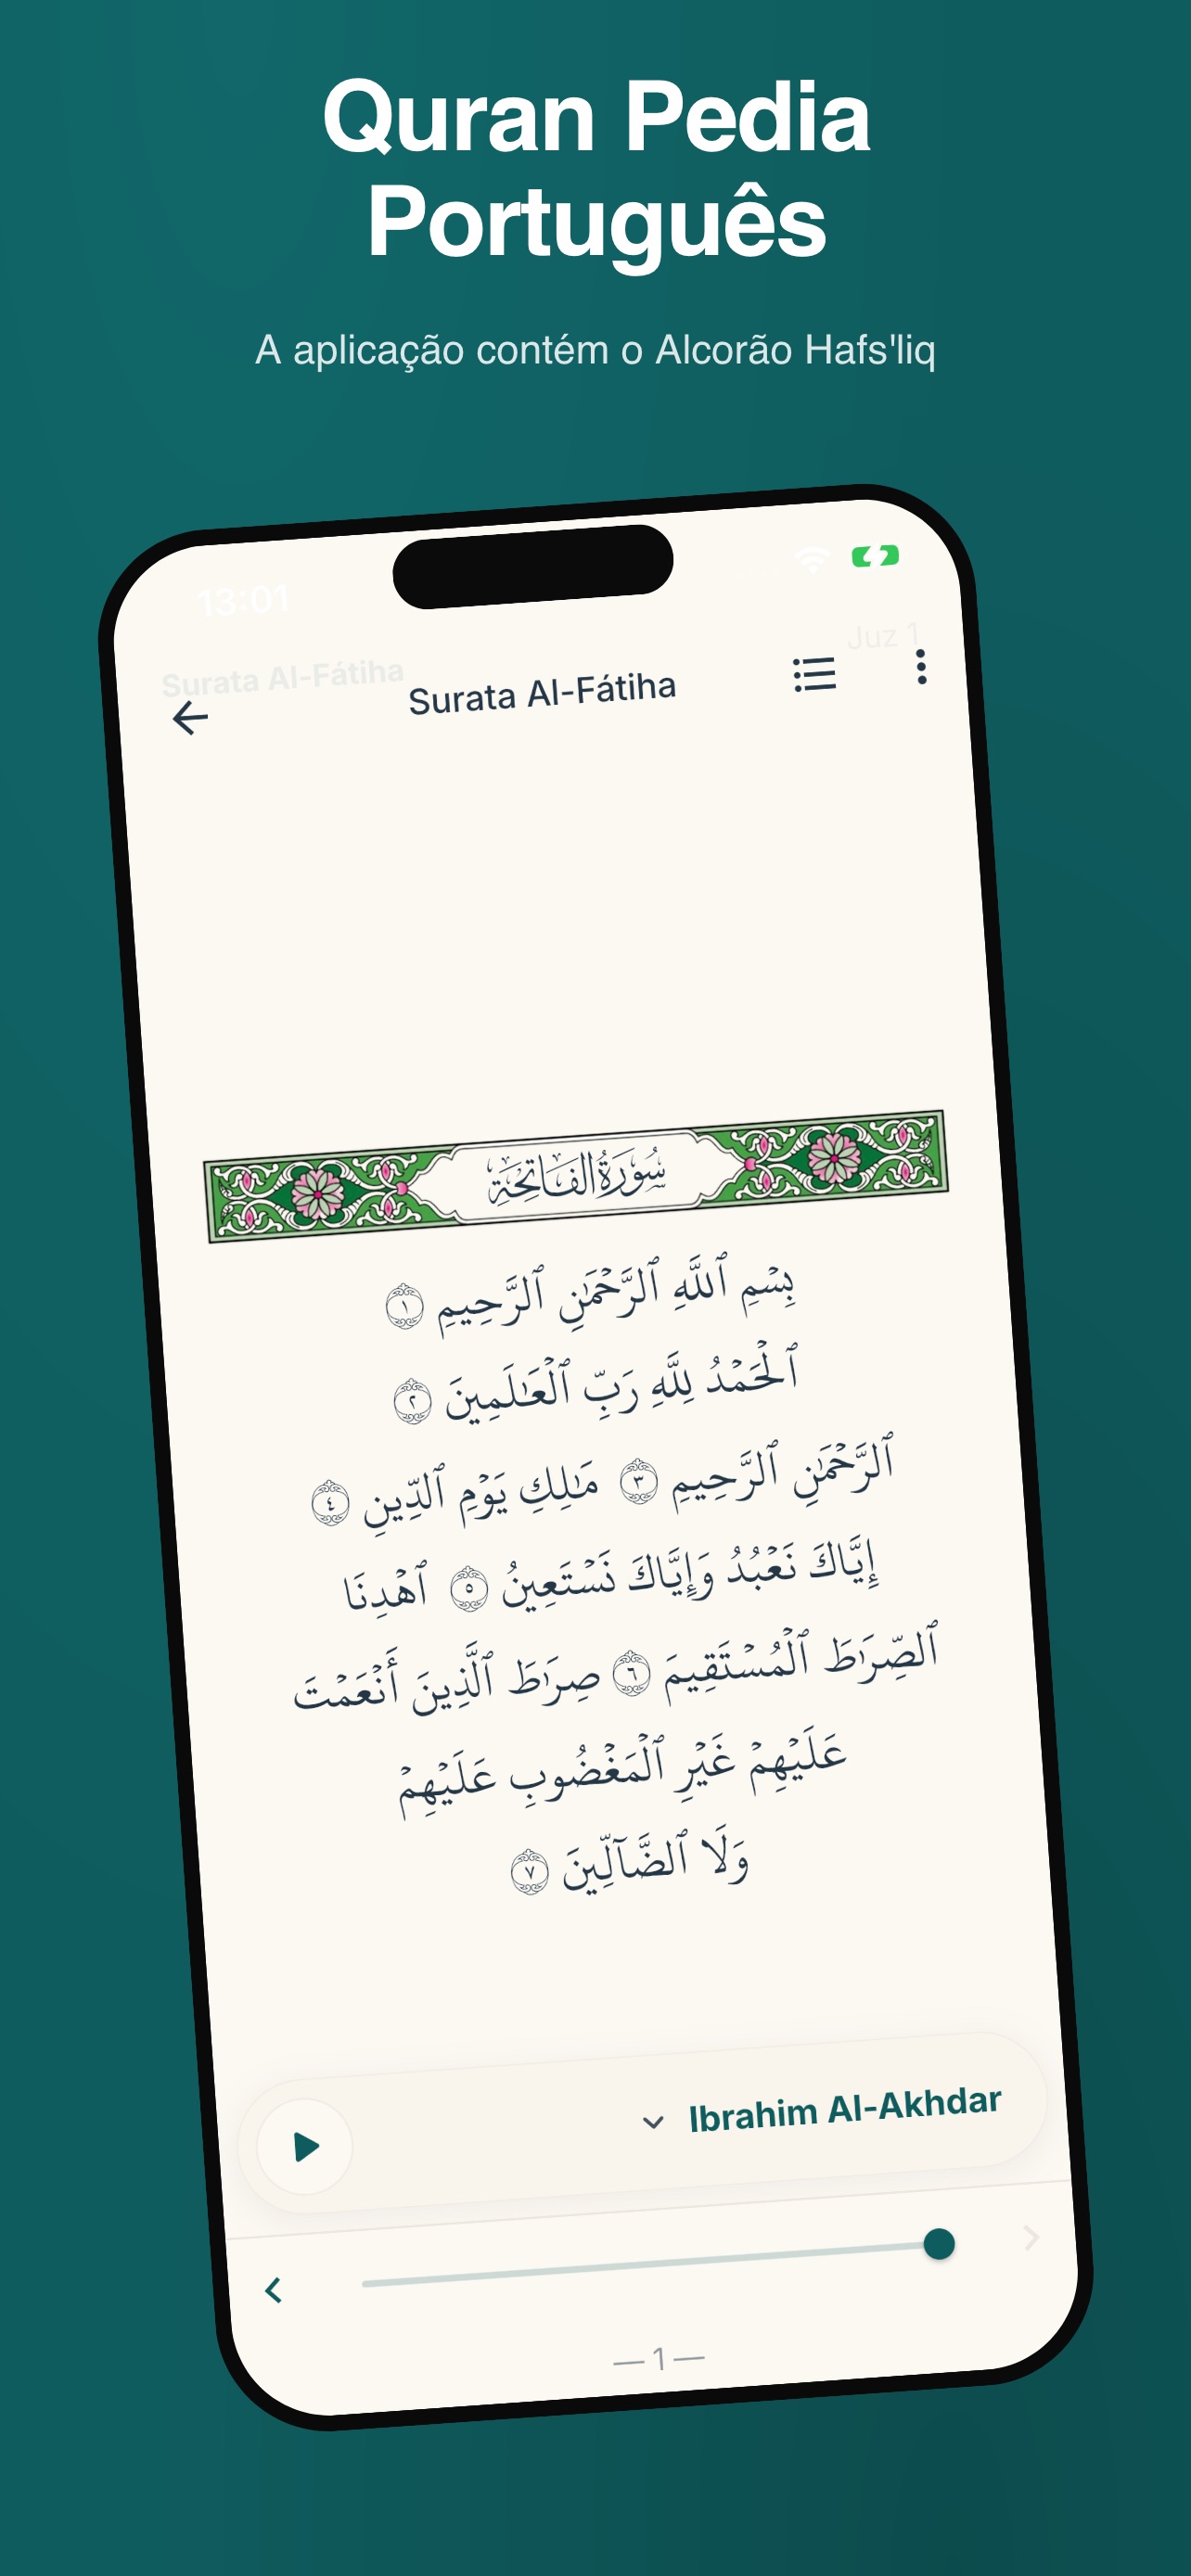 Quran Pedia
Português
A aplicação contém o Alcorão Hafs'liq
13:01
Surata Al-Fátiha
Juz 1
Surata Al-Fátiha
سُورَةُ الفَاتِحَةِ
بِسۡمِ ٱللَّهِ ٱلرَّحۡمَٰنِ ٱلرَّحِيمِ ١
ٱلۡحَمۡدُ لِلَّهِ رَبِّ ٱلۡعَٰلَمِينَ ٢
ٱلرَّحۡمَٰنِ ٱلرَّحِيمِ ٣ مَٰلِكِ يَوۡمِ ٱلدِّينِ ٤
إِيَّاكَ نَعۡبُدُ وَإِيَّاكَ نَسۡتَعِينُ ٥ ٱهۡدِنَا
ٱلصِّرَٰطَ ٱلۡمُسۡتَقِيمَ ٦ صِرَٰطَ ٱلَّذِينَ أَنۡعَمۡتَ
عَلَيۡهِمۡ غَيۡرِ ٱلۡمَغۡضُوبِ عَلَيۡهِمۡ
وَلَا ٱلضَّآلِّينَ ٧
Ibrahim Al-Akhdar
—1—